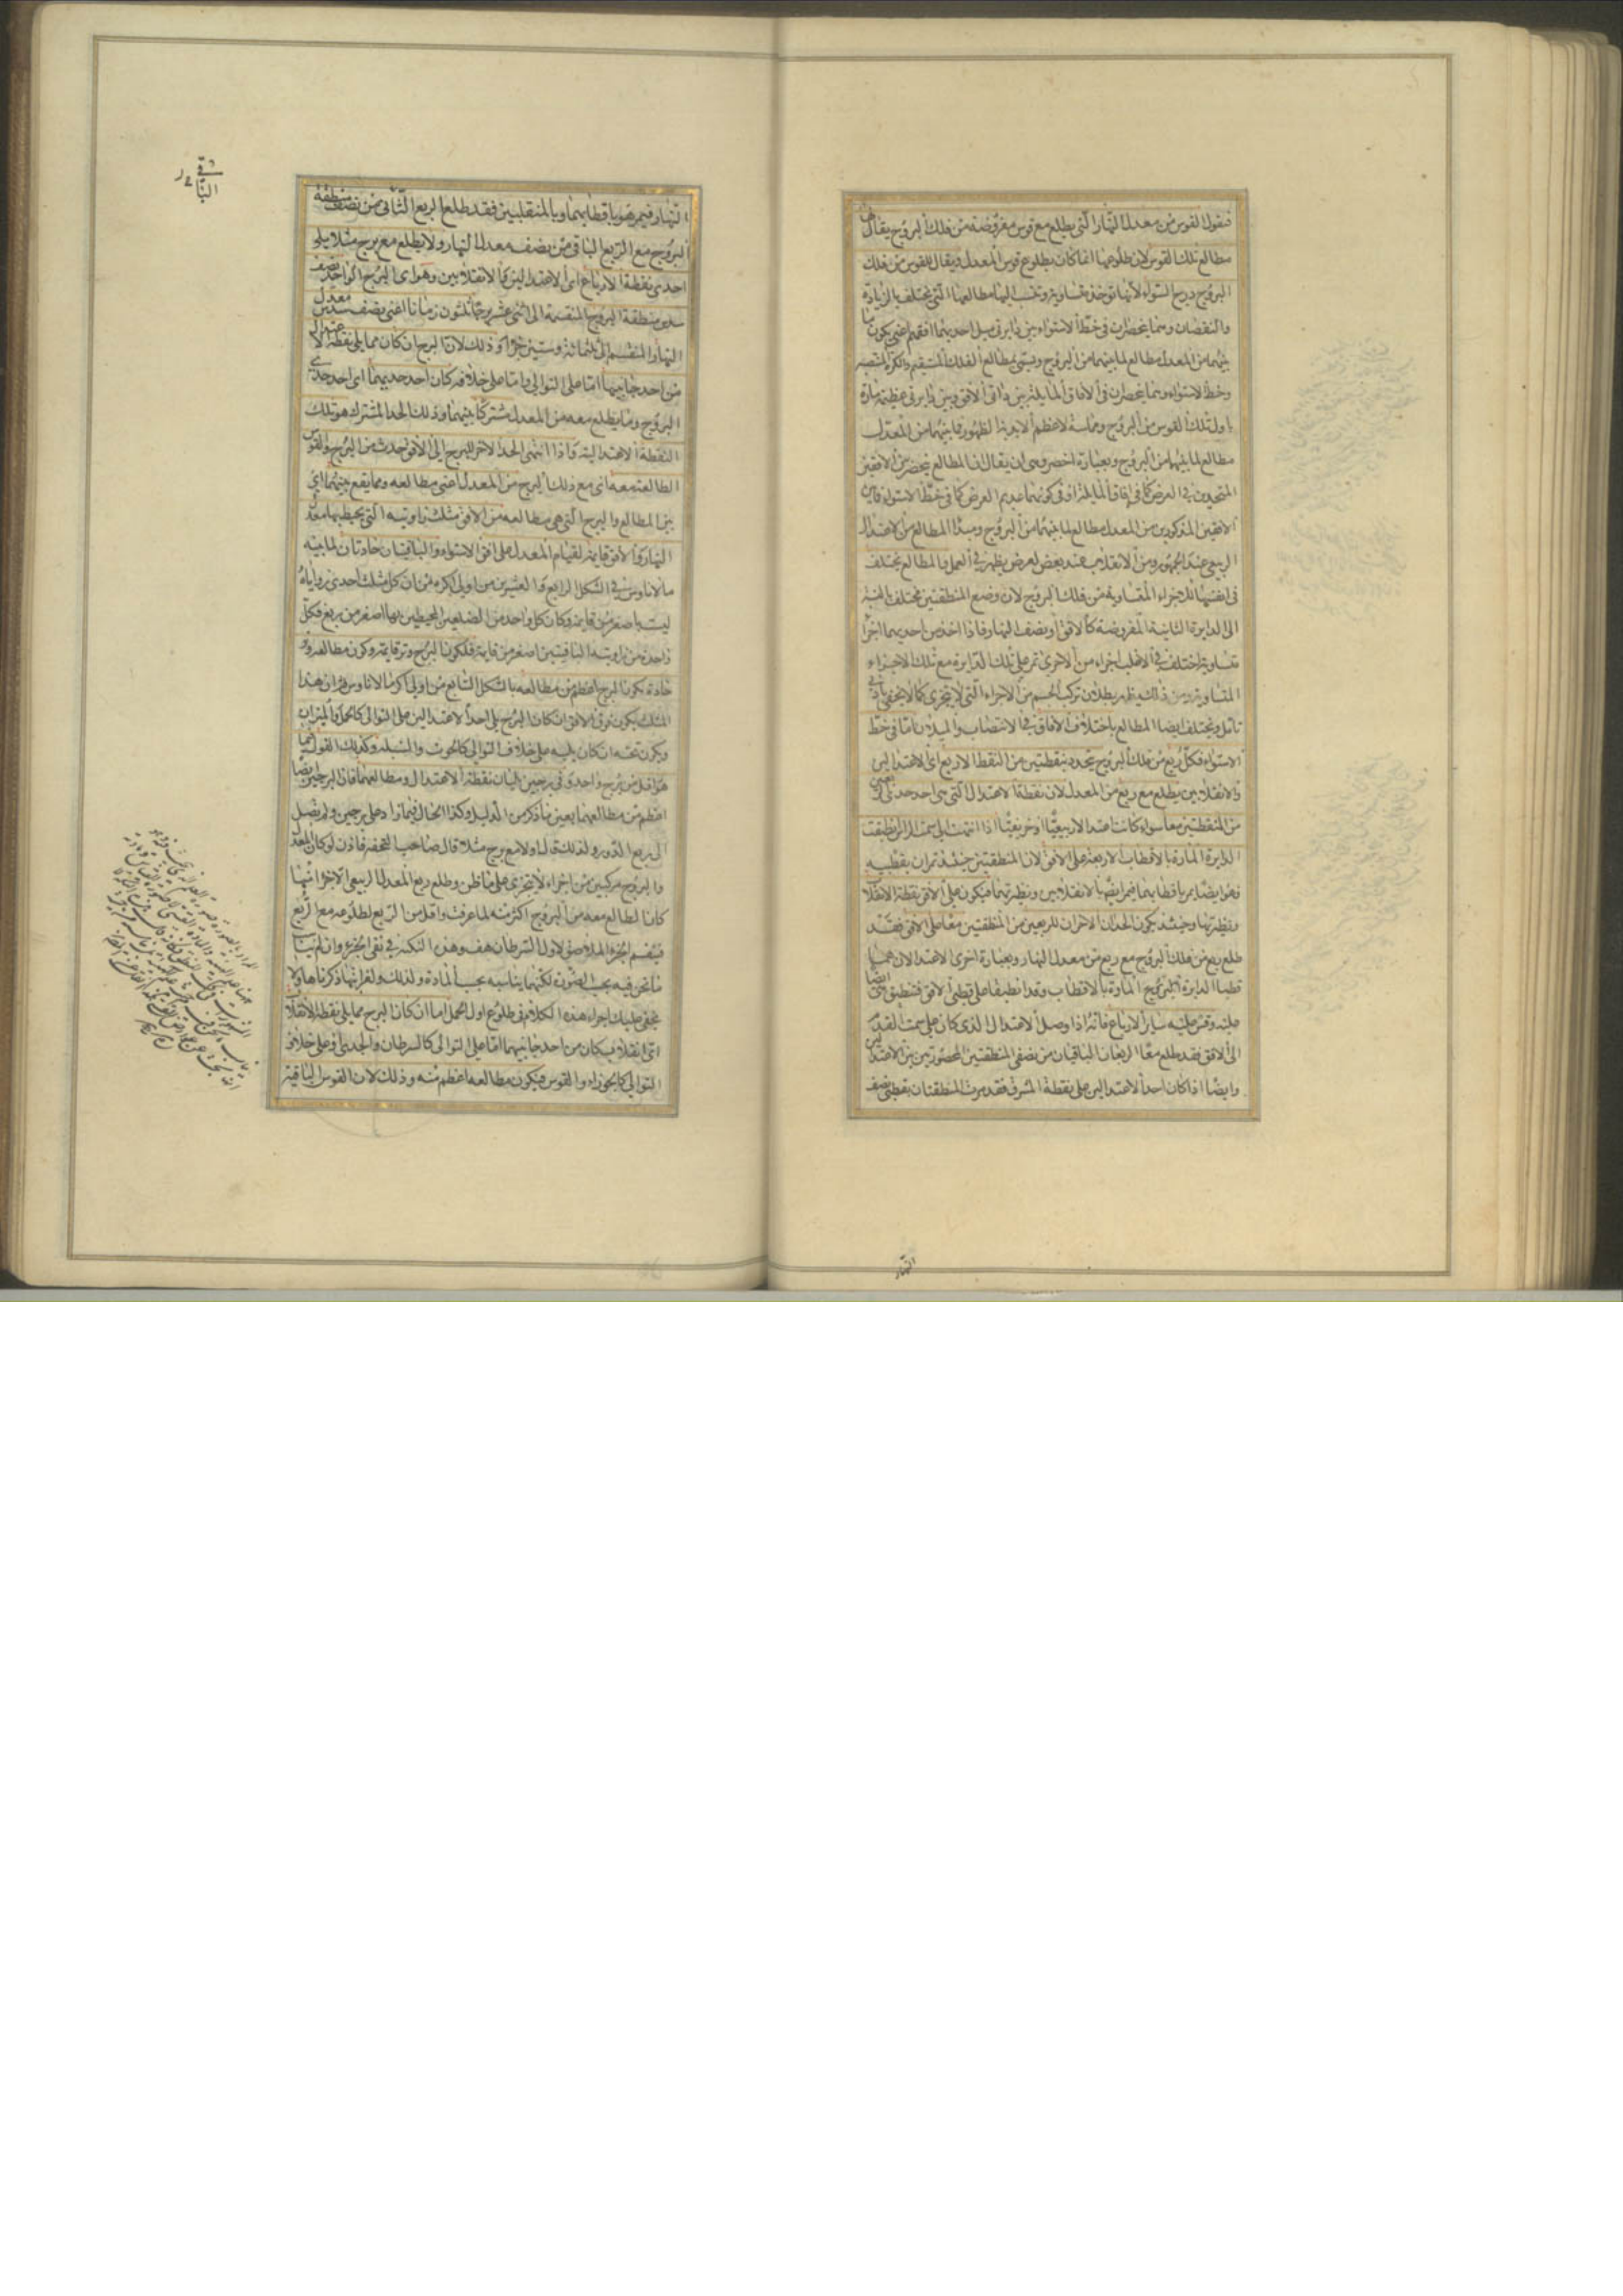 فنقول القوس من معدل النهار التى يطلع مع قوس مفروضة من فلك البروج يقال لها
مطالع تلك القوس لان طلوعها انما كان بطلوع قوس المعدل ويقال للقوس من فلك
البروج درج السواء لانها توخذ متساوية وتنسب اليها مطالعها التى تختلف بالزيادة
والنقصان وهما يحصران فى خط الاستواء بين دايرتى ميل احديهما افقه اعنى يكون ما
بينهما من المعدل مطالع لما بينهما من البروج ويسمى بمطالع الفلك المستقيم والكرة المنتصبة
وخط الاستواء وهما يحصران فى الافاق المايلة بين دايرتى الافق وبين دايرتى عظيمة مارة
باول تلك القوس من البروج ومماسة لاعظم الابدية الظهور فما بينهما من المعدل
مطالع لما بينهما من البروج وبعبارة اخصر وهى ان يقال ان المطالع ينحصر بين الافقين
المتحدين فى العرض كما فى افاق المايلة او فى كونهما عديم العرض كما فى خط الاستواء فما بين
الافقين المذكورين من المعدل مطالع لما بينهما من البروج ومبدا المطالع من الاعتدال
الربيعى عند الجمهور ومن الانقلاب عند بعض لغرض يظهر فى العمل والمطالع يختلف
فى انفسها للاجزاء المتساوية من فلك البروج لان وضع المنطقتين مختلف بالنسبة
الى الدايرة الثانية المفروضة كالافق او نصف النهار فاذا اخذ من احديهما اجزاء
متساوية اختلف فى الاغلب اجزاء من الاخرى تمر على تلك الدايرة مع تلك الاجزاء
المتساوية ومن ذلك يظهر بطلان تركب الجسم من الاجزاء التى لا يتجزى كما لا يخفى بادنى
تامل ويختلف ايضا المطالع باختلاف الافاق فى الانتصاب والميلان اما فى خط
الاستواء فكل ربع من فلك البروج يتحدد بنقطتين من النقط الاربع اى الاعتدالين
والانقلابين يطلع مع ربع من المعدل لان نقطة الاعتدال التى هى احد حدى الربعين
من المنطقتين معا سواء كانت اعتدالا ربيعيا او خريفيا اذا انتهت الى سمت الراس انطبقت
الدايرة المارة بالاقطاب الاربعة على الافق لان المنطقتين حينئذ تمران بقطبيه
فهو ايضا يمر باقطابهما فيمر ايضا بالانقلابين ونظيرتهما فيكون على الافق نقطة الانقلاب
ونظيرتها وحينئذ يكون الحدان الاخران للربعين من المنطقتين معا على الافق فقد
طلع ربع من فلك البروج مع ربع من معدل النهار وبعبارة اخرى الاعتدالان هما
قطبا الدايرة المارة بالاقطاب وقد انطبقا على قطبى الافق فتنطبق هى ايضا
عليه وقس عليه ساير الارباع فانه اذا وصل الاعتدال الذى كان على سمت القدم
الى الافق فقد طلع معا الربعان الباقيان من نصفى المنطقتين المحصورتين بين الاعتدالين
وايضا اذا كان احد الاعتدالين على نقطة المشرق فقد مرت المنطقتان بقطبى نصف
النهار
الباقى
النهار فيمر هو باقطابهما وبالمنقلبين فقد طلع الربع الثانى من نصف منطقة
البروج مع الربع الباقى من نصف معدل النهار ولا يطلع مع برج مثلا يلى
احدى نقطة الارباع اى الاعتدالين كما الانقلابين وهو اى البرج الواحد نصف
سدس منطقة البروج المنقسمة الى اثنى عشر برجا ثلثون زمانا اعنى نصف سدس معدل
النهار المنقسم الى ثلثمائة وستين جزءا وذلك لان البرج ان كان مما يلى نقطة الاعتدال
من احد جانبيها اما على التوالى واما على خلافه كان احد حديهما اى احد حدى
البروج وما يطلع معه من المعدل مشتركا بينهما وذلك الحد المشترك هو تلك
النقطة الاعتدالية فاذا انتهى الحد الاخر للبرج الى الافق حدث من البرج والقوس
الطالعة معه اى مع ذلك البرج من المعدل اعنى مطالعه ومما يقع بينهما اى
بين المطالع والبرج التى هى مطالعه من الافق مثلث زاويته التى يحيط بها معدل
النهار والافق قايمة لقيام المعدل على افق الاستواء والباقيتان حادتان لما بينه
مالاناوس فى الشكل الرابع والعشرين من اولى اكره من ان كل مثلث احدى زواياه
ليست باصغر من قايمة وكان كل واحد من الضلعين المحيطين بها اصغر من ربع فكل
واحدة من زاويته الباقيتين اصغر من قايمة فلكون البرج وتر قايمة وكون مطالعه وتر
حادة يكون البرج اعظم من مطالعه بالشكل السابع من اولى اكر مالاناوس وان هذا
المثلث يكون فوق الافق ان كان البرج يلى احد الاعتدالين على التوالى كالحمل والميزان
ويكون تحته ان كان يليه على خلاف التوالى كالحوت والسنبلة وكذلك القول فيما
هو اقل من برج واحد وفى برجين يليان نقطة الاعتدال ومطالعهما فان البرجين ايضا
اعظم من مطالعهما بعين ما ذكر من الدليل وكذا الحال فيما زاد على برجين ولم يصل
الى ربع الدور ولذلك قال ولا مع برج مثلا قال صاحب التحفة فاذن لو كان المعدل
والبروج مركبين من اجزاء لا يتجزى على ما ظن وطلع ربع المعدل الربيعى الا جزءا منها
كان الطالع معه من البروج اكثر منه لما عرفت واقل من الربع لطلوعه مع الربع
فينقسم الجزء الملاصق لاول السرطان هف وهذه النكتة فى نفى الجزء وان لم يناسب
ما نحن فيه بحسب الصورة لكنها يناسبه بحسب المادة ولذلك ولغرابتها ذكرناها ولا
يخفى عليك اجراء هذا الكلام فى طلوع اول الحمل اما ان كان البرج مما يلى نقطة الانقلاب
اى انقلاب كان من احد جانبيهما اما على التوالى كالسرطان والجدى او على خلاف
التوالى كالجوزاء والقوس فيكون مطالعه اعظم منه وذلك لان القوس الباقية